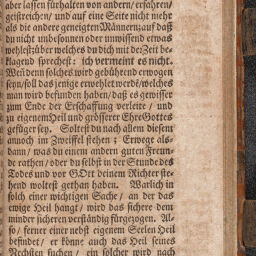 aber lassen fürhalten von andern/ erfahren/
geistreichen/ und auf eine Seite nicht mehr
als die andere geneigten Männern: auf daß
du nicht unbesonnen oder unwissend etwas
wehlest: über welches du dich mit der Zeit be-
klagend sprechest: ich vermeint es nicht.
Weñ denn solches wird gebührend erwogen
seyn/ soll das jenige erwehlet werdē/ welches
man wird befunden haben/ daß es gewisser
zum Ende der Erschaffung verleite / und
zu eigenem Heil und grösserer Ehre Gottes
gefüger sey. Soltest du nach allem diesem
annoch im Zweiffel stehen; Erwege als-
dann / was du einem andern guten Freun-
de rathen / oder du selbst in der Stunde des
Todes und vor GOtt deinem Richter ste-
hend woltest gethan haben. Warlich in
solch einer wichtigen Sache / an der das
ewige Heil hangt / wird das sichere dem
minder sicheren verständig fürgezogen. Al-
so / ferner einer nebst eigenem Seelen Heil
befindet / er könne auch das Heil seines
Nechsten suchen / ein solcher wird nach